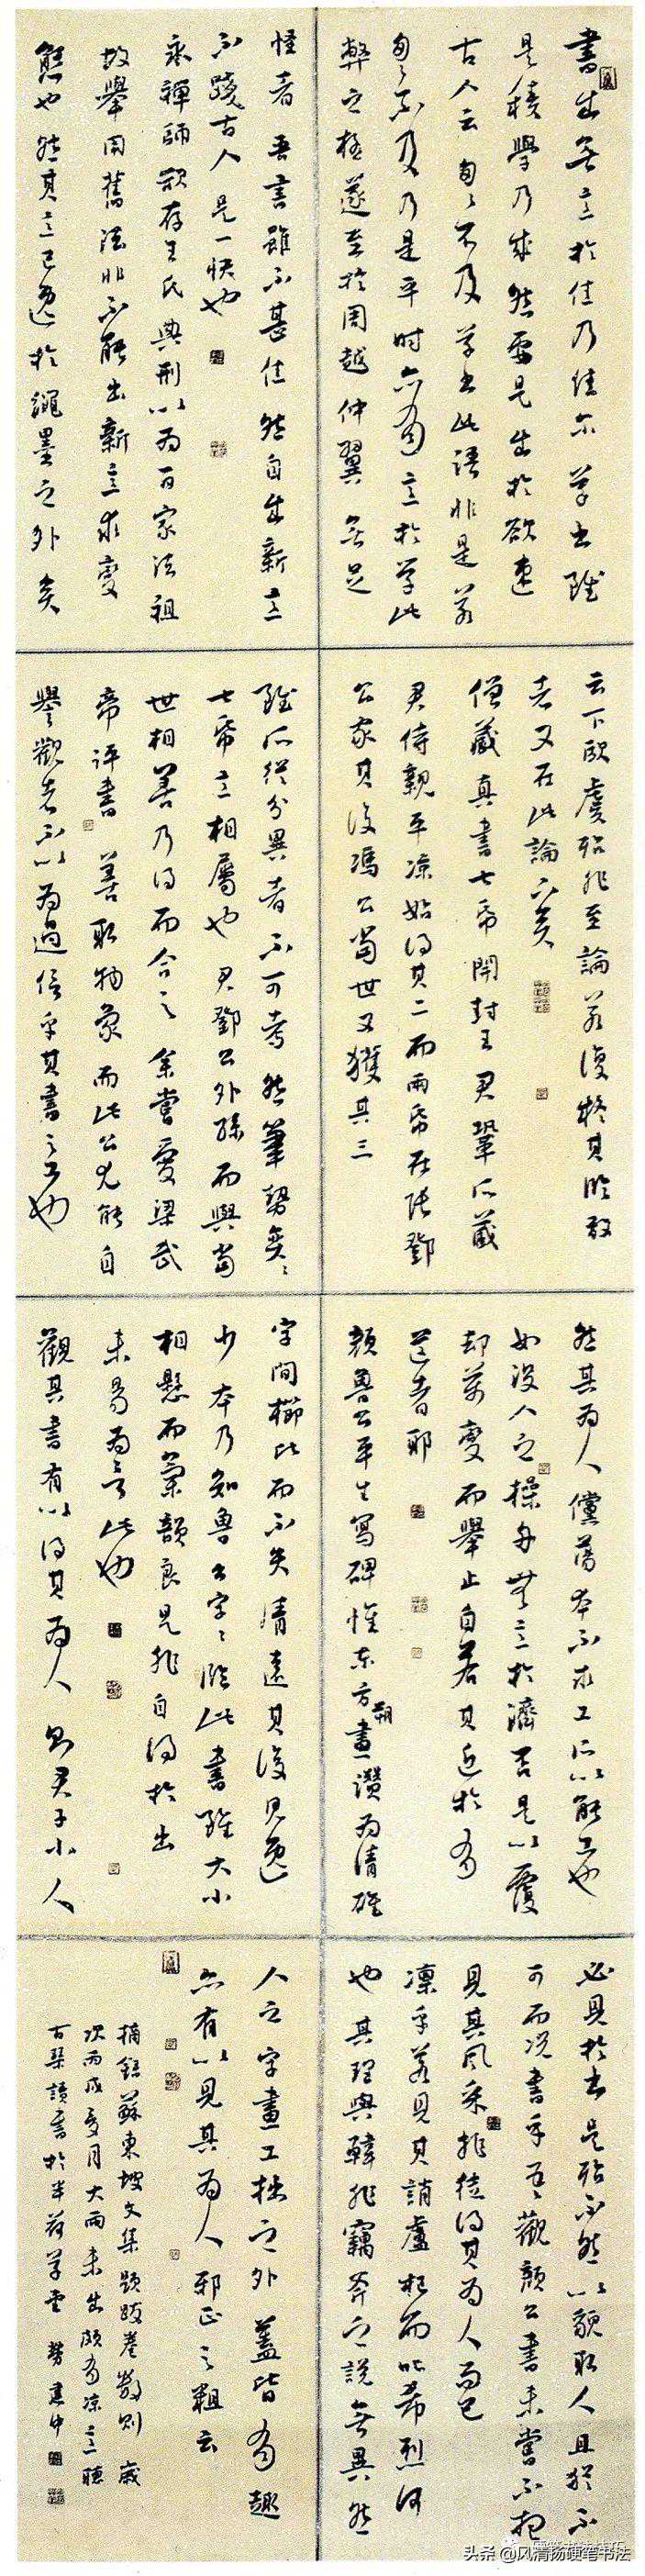 書出無意於佳乃佳尔草書雖
是積學乃成然要是出於欲速
古人云匆匆不及草書此語非是若
匆匆不及乃是平時亦有意於學此
弊之極遂至於周越仲翼無足
怪者吾書雖不甚佳然自出新意
不踐古人是一快也
永禪師欲存王氏典刑以為百家法祖
故舉用舊法非不能出新意求變
態也然其意已逸於繩墨之外矣
云下歐虞殆非至論若復疑其臨放
者又在此論下矣
僧藏真書七帋開封王君鞏所藏
君侍親平涼始得其二而兩帋在張鄧
公家其後馮公當世又獲其三
雖所從分異者不可考然筆勢奕奕
七帋意相屬也君鄧公外孫而與當
世相善乃得而合之余嘗愛梁武
帝評書善取物象而此公尤能自
譽觀者不以為過信乎其書之工也
然其為人儻蕩本不求工所以能工也
如沒人之操舟無意於濟否是以覆
却萬變而舉止自若其近於有
道者耶
顏魯公平生寫碑惟東方朔畫讚為清雄
字間櫛比而不失清遠其後見逸
少本乃知魯公字字臨此書雖大小
相懸而氣韻良是非自得於書
未易為言此也
觀其書有以得其為人則君子小人
必見於書是殆不然以貌取人且猶不
可而況書乎吾觀顏公書未嘗不想
見其風采非徒得其為人而已
凜乎若見其誚盧杞而叱希烈何
也其理與韓非竊斧之說無異然
人之字畫工拙之外蓋皆有趣
亦有以見其為人邪正之粗云
摘録蘇東坡文集題跋卷數則 歲
次丙戌夏月大雨未出頗有涼意聽
古琴讀書於半荷草堂
头条 @风清扬硬笔书法